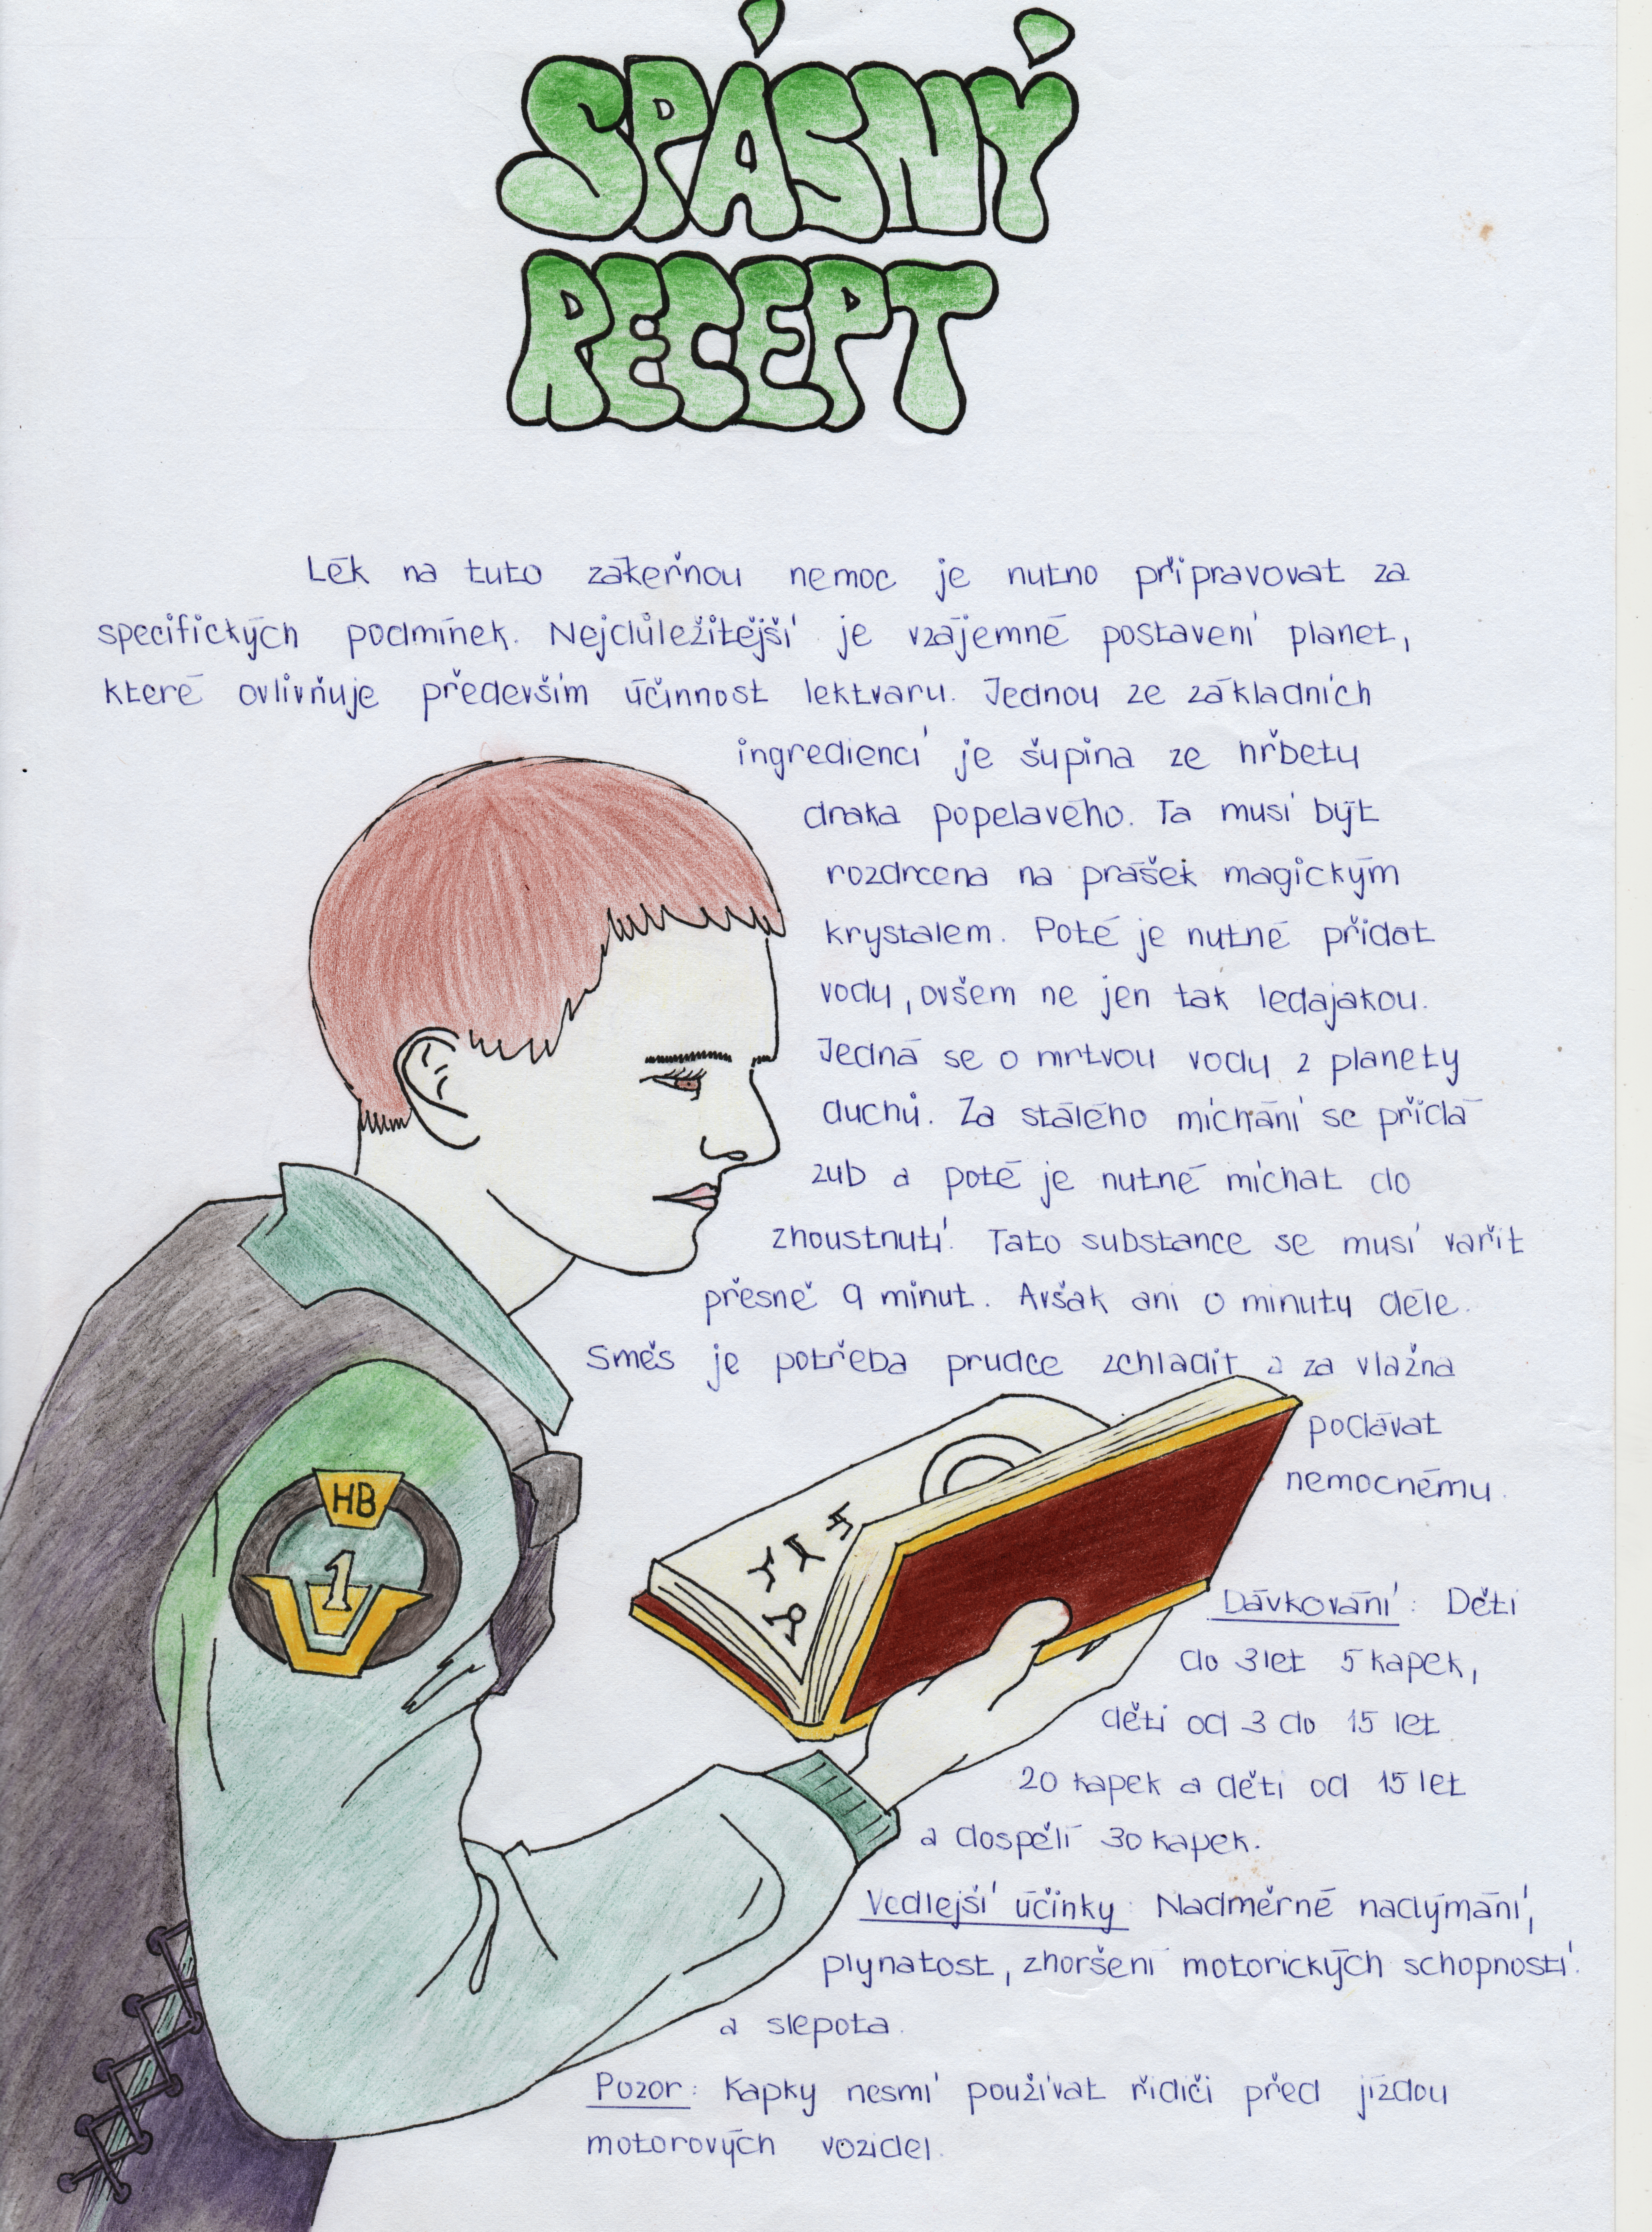 SPÁSNÝ
RECEPT
Lék na tuto zákeřnou nemoc je nutno připravovat za
specifických podmínek. Nejdůležitější je vzájemné postavení planet,
které ovlivňuje především účinnost lektvaru. Jednou ze základních
ingrediencí je šupina ze hřbetu
draka popelavého. Ta musí být
rozdrcena na prášek magickým
krystalem. Poté je nutné přidat
vody, ovšem ne jen tak ledajakou.
Jedná se o mrtvou vodu z planety
duchů. Za stálého míchání se přidá
zub a poté je nutné míchat do
zhoustnutí. Tato substance se musí vařit
přesně 9 minut. Avšak ani o minutu déle.
Směs je potřeba prudce zchladit a za vlažna
podávat
nemocnému.
HB
1
Dávkování: Děti
do 3 let 5 kapek,
děti od 3 do 15 let
20 kapek a děti od 15 let
a dospělí 30 kapek.
Vedlejší účinky: Nadměrné nadýmání,
plynatost, zhoršení motorických schopností
a slepota.
Pozor: Kapky nesmí používat řidiči před jízdou
motorových vozidel.